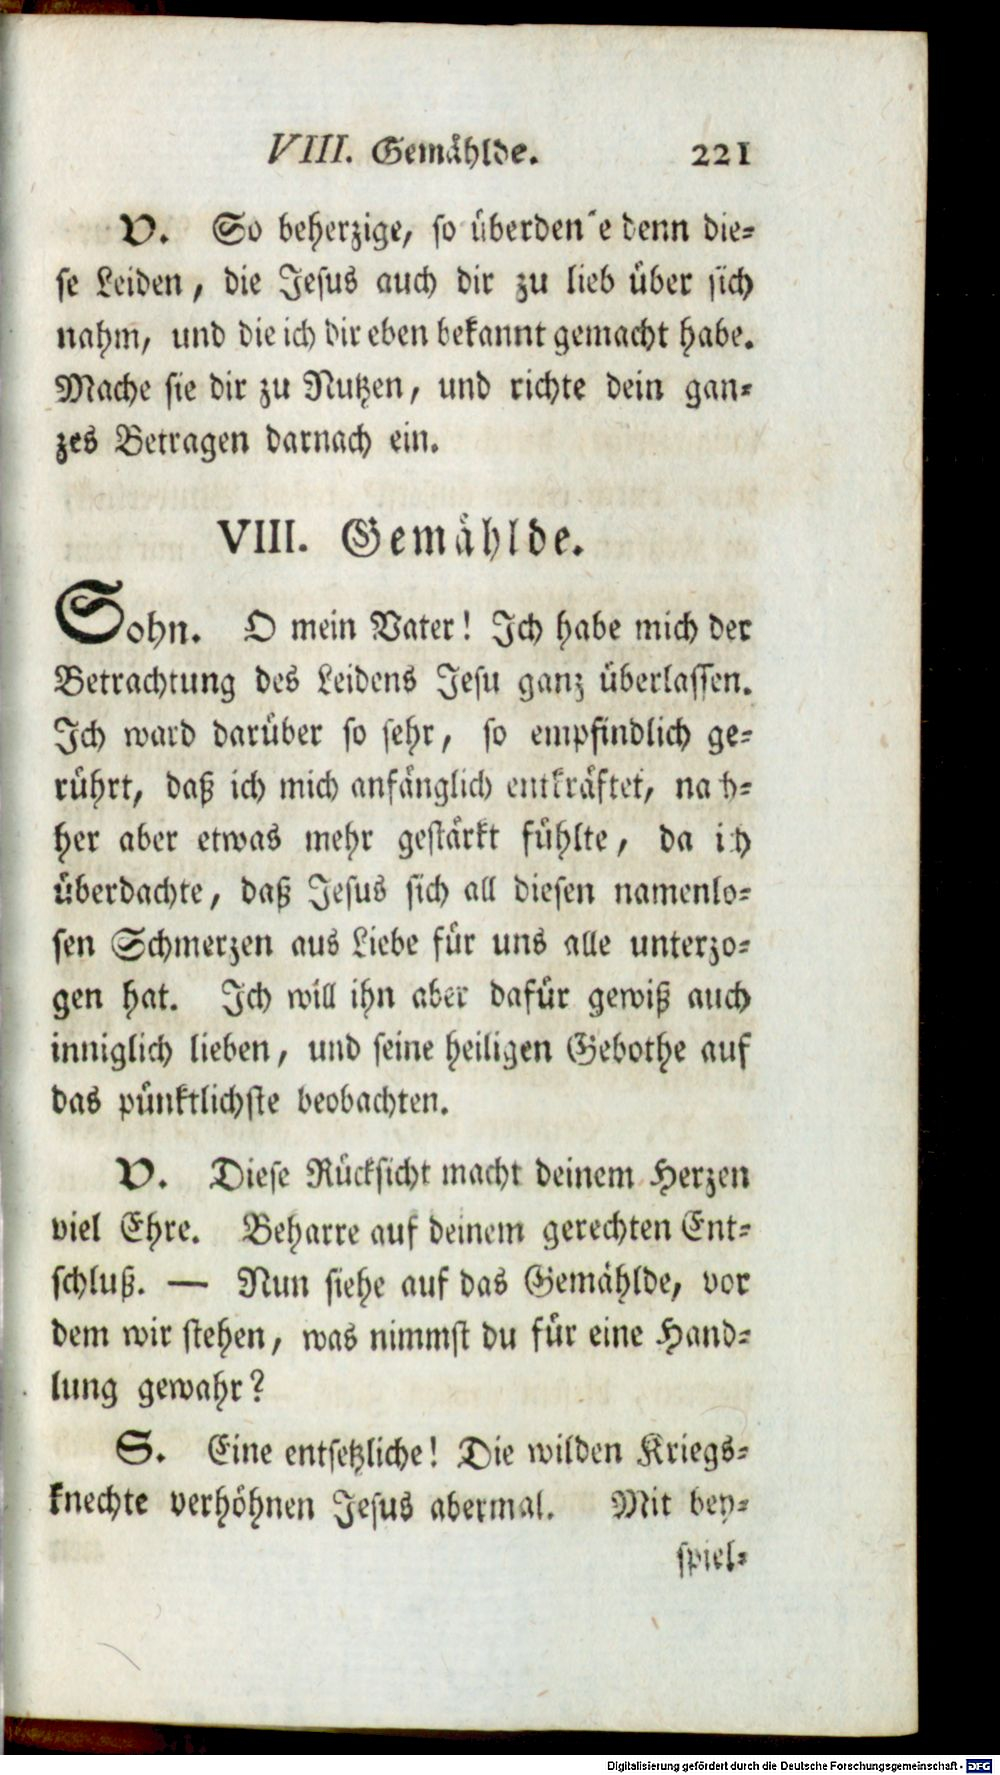 VIII. Gemählde. 221
V. So beherzige, so überdenke denn die-
se Leiden, die Jesus auch dir zu lieb über sich
nahm, und die ich dir eben bekannt gemacht habe.
Mache sie dir zu Nutzen, und richte dein gan-
zes Betragen darnach ein.
VIII. Gemählde.
Sohn. O mein Vater! Ich habe mich der
Betrachtung des Leidens Jesu ganz überlassen.
Ich ward darüber so sehr, so empfindlich ge-
rührt, daß ich mich anfänglich entkräftet, nach-
her aber etwas mehr gestärkt fühlte, da ich
überdachte, daß Jesus sich all diesen namenlo-
sen Schmerzen aus Liebe für uns alle unterzo-
gen hat. Ich will ihn aber dafür gewiß auch
inniglich lieben, und seine heiligen Gebothe auf
das pünktlichste beobachten.
V. Diese Rücksicht macht deinem Herzen
viel Ehre. Beharre auf deinem gerechten Ent-
schluß. — Nun siehe auf das Gemählde, vor
dem wir stehen, was nimmst du für eine Hand-
lung gewahr?
S. Eine entsetzliche! Die wilden Kriegs-
knechte verhöhnen Jesus abermal. Mit bey-
spiel-
Digitalisierung gefördert durch die Deutsche Forschungsgemeinschaft - DFG